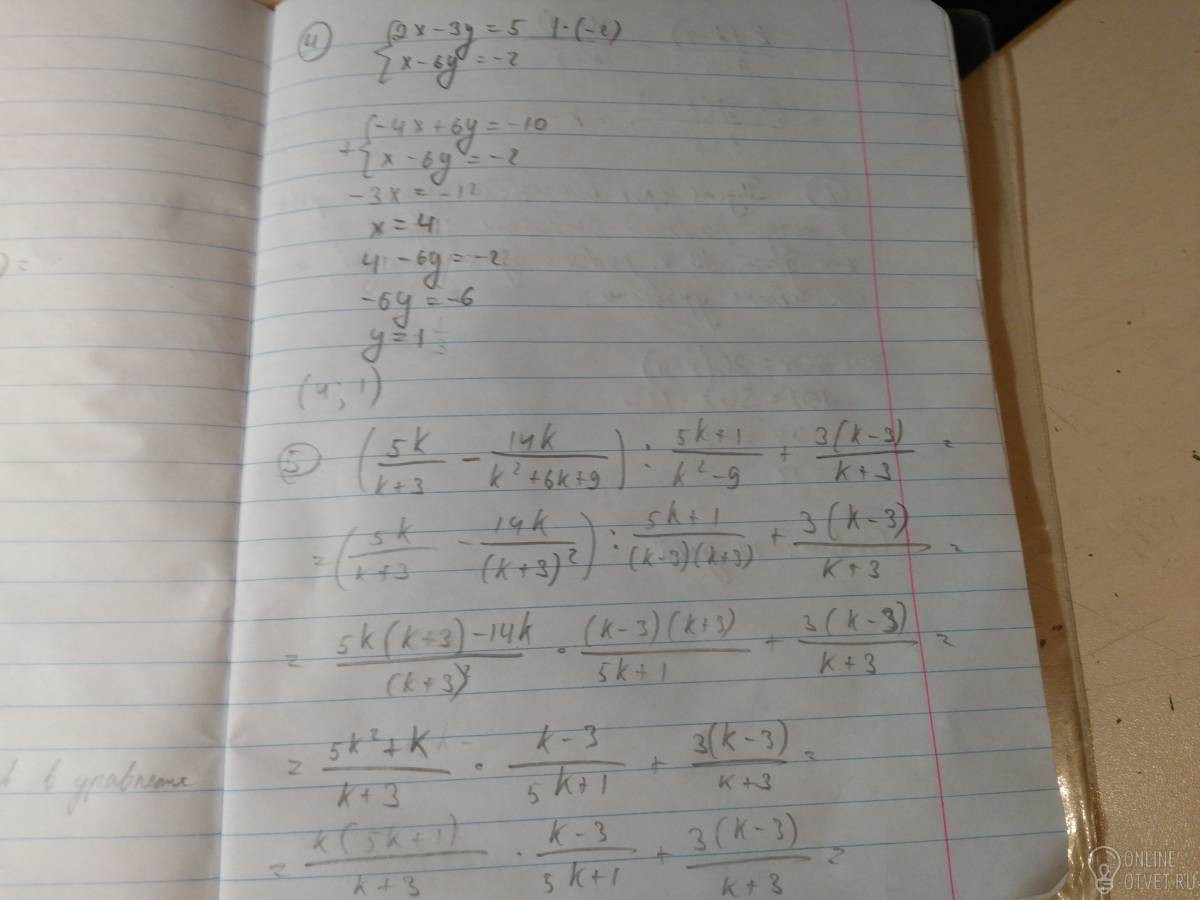 ④ {2x-3y=5 |·(-2)
{x-6y=-2
+{-4x+6y=-10
{x-6y=-2
-3x=-12
x=4
4-6y=-2
-6y=-6
y=1
(4; 1)
⑤ (5k/(k+3) - 14k/(k²+6k+9)) : (5k+1)/(k²-9) + 3(k-3)/(k+3) =
= (5k/(k+3) - 14k/(k+3)²) : (5k+1)/((k-3)(k+3)) + 3(k-3)/(k+3) =
= (5k(k+3)-14k)/(k+3)² · (k-3)(k+3)/(5k+1) + 3(k-3)/(k+3) =
= (5k²+k)/(k+3) · (k-3)/(5k+1) + 3(k-3)/(k+3) =
= k(5k+1)/(k+3) · (k-3)/(5k+1) + 3(k-3)/(k+3) =
) =
в уравнения
ONLINE
OTVET.RU